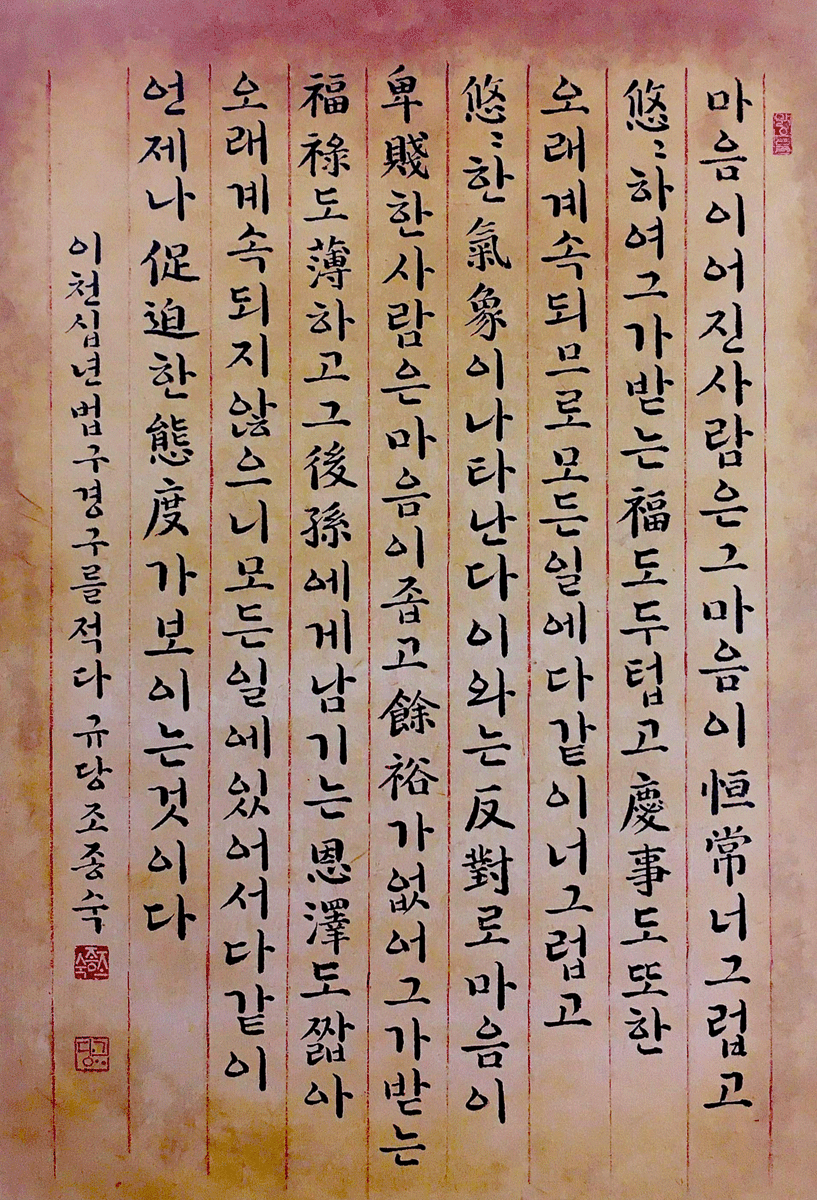 마음이어진사람은그마음이恒常너그럽고
悠〻하여그가받는福도두텁고慶事도또한
오래계속되므로모든일에다같이너그럽고
悠〻한氣象이나타난다이와는反對로마음이
卑賤한사람은마음이좁고餘裕가없어그가받는
福祿도薄하고그後孫에게남기는恩澤도짧아
오래계속되지않으니모든일에있어서다같이
언제나促迫한態度가보이는것이다
이천십년법구경구를적다규당조종숙
조종숙
규당